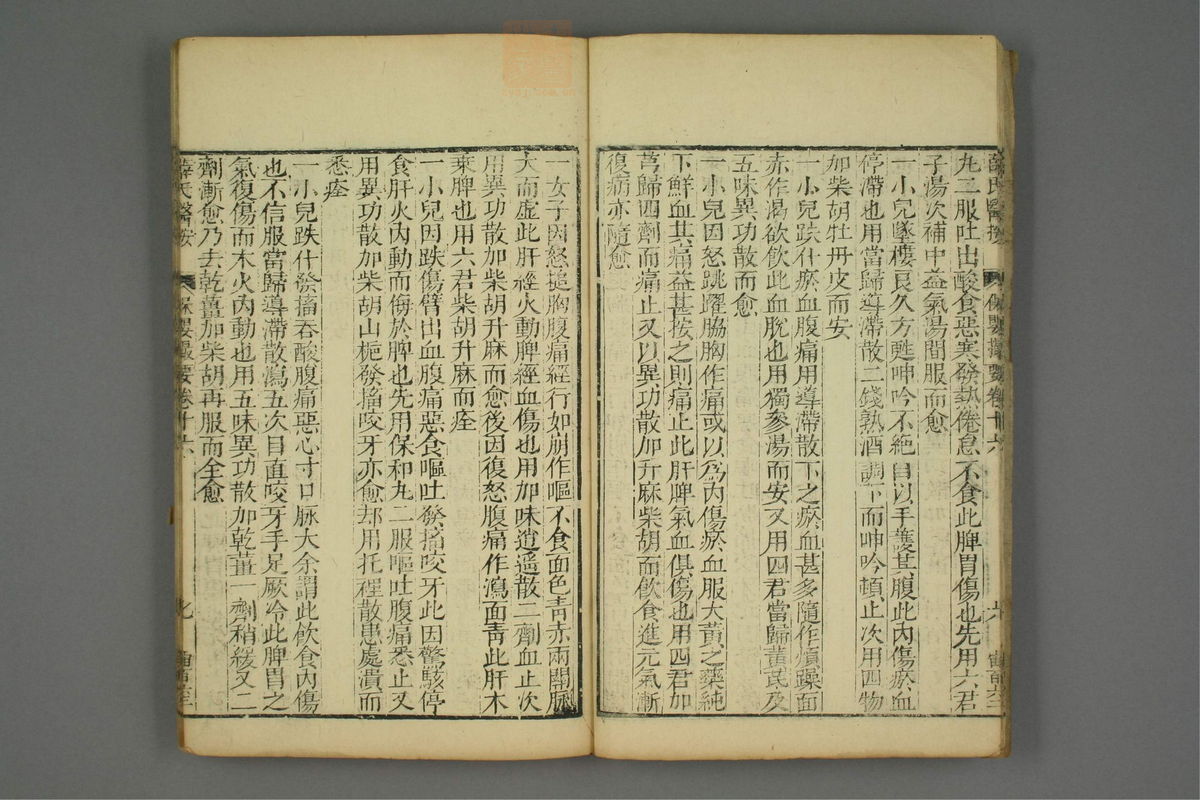 薛氏醫按 保嬰撮要卷十六 六
丸二服吐出酸食惡寒發熱倦怠不食此脾胃傷也先用六君
子湯次補中益氣湯間服而愈
一小兒墜樓良久方甦呻吟不絶自以手護其腹此內傷瘀血
停滯也用當歸導滯散二錢熟酒調下而呻吟頓止次用四物
加柴胡牡丹皮而安
一小兒跌仆瘀血腹痛用導滯散下之瘀血甚多隨作煩躁面
赤作渴欲飲此血脫也用獨參湯而安又用四君當歸黃芪及
五味異功散而愈
一小兒因怒跳躍脇胸作痛或以爲內傷瘀血服大黃之藥純
下鮮血其痛益甚按之則痛止此肝脾氣血俱傷也用四君加
芎歸四劑而痛止又以異功散加升麻柴胡而飲食進元氣漸
復病亦隨愈
一女子因怒搥胸腹痛經行如崩作嘔不食面色靑赤兩關脈
大而虛此肝經火動脾經血傷也用加味逍遥散二劑血止次
用異功散加柴胡升麻而愈後因復怒腹痛作瀉面靑此肝木
乘脾也用六君柴胡升麻而痊
一小兒因跌傷臂出血腹痛惡食嘔吐發搐咬牙此因驚駭停
食肝火內動而侮於脾也先用保和丸二服嘔吐腹痛悉止又
用異功散加柴胡山梔發搐咬牙亦愈却用托裡散患處潰而
悉痊
一小兒跌仆發搐吞酸腹痛惡心寸口脉大余謂此飲食內傷
也不信服當歸導滯散瀉五次目直咬牙手足厥冷此脾胃之
氣復傷而木火內動也用五味異功散加乾薑一劑稍緩又二
劑漸愈乃去乾薑加柴胡再服而全愈
薛氏醫按 保嬰撮要卷十六